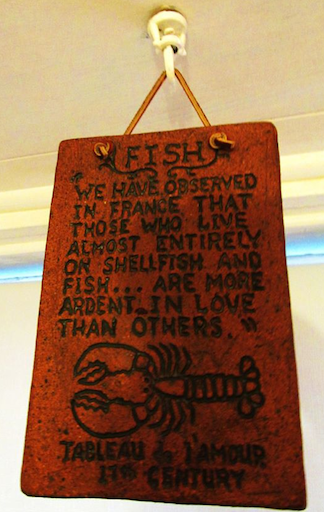 FISH
"WE HAVE OBSERVED
IN FRANCE THAT
THOSE WHO LIVE
ALMOST ENTIRELY
ON SHELLFISH AND
FISH... ARE MORE
ARDENT IN LOVE
THAN OTHERS."
TABLEAU de L'AMOUR
17th CENTURY